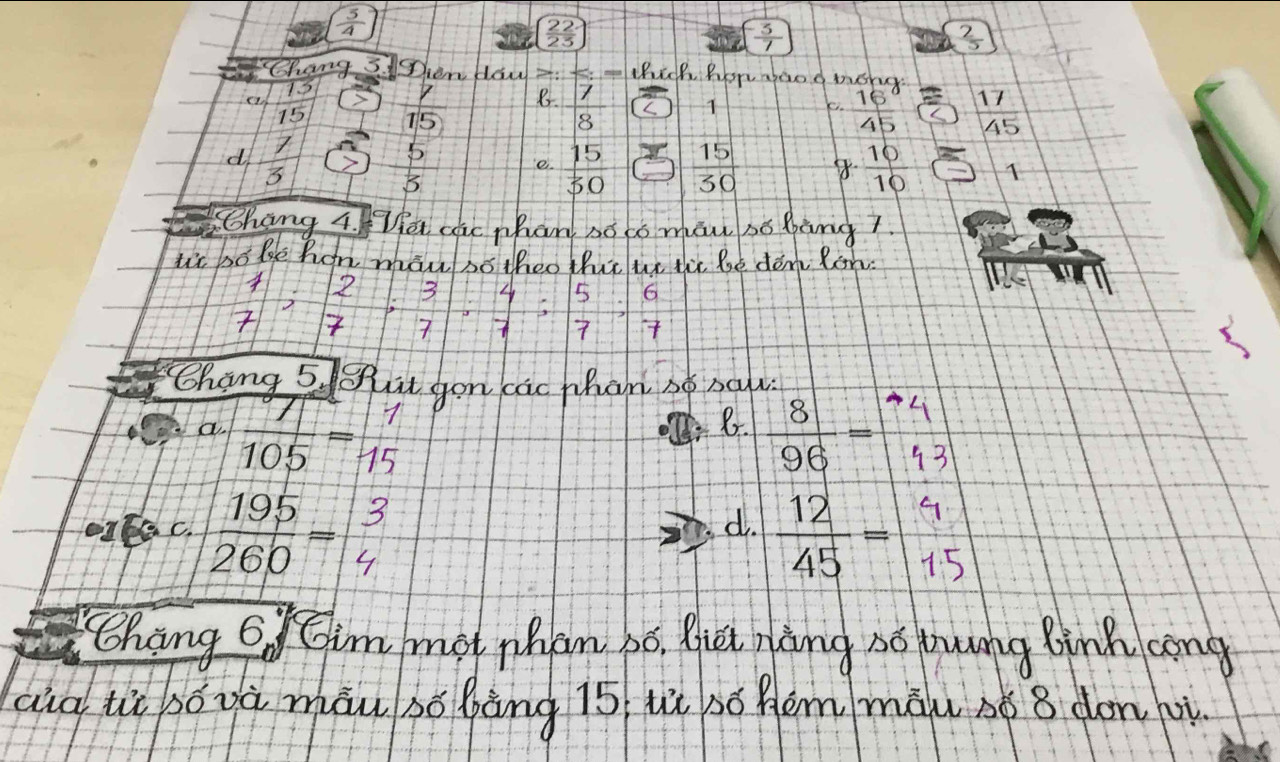 3/4 22/23 3/7 2/5
Chặng 3. Điền dấu >; <; = thích hợp vào ô trống:
a. 13/15 > 7/15 b. 7/8 < 1 c. 16/45 < 17/45
d. 7/3 > 5/3 e. 15/30 = 15/30 g. 10/10 = 1
Chặng 4. Viết các phân số có mẫu số bằng 7.
tử số bé hơn mẫu số theo thứ tự từ bé đến lớn:
1/7 ; 2/7 ; 3/7 ; 4/7 ; 5/7 ; 6/7
Chặng 5. Rút gọn các phân số sau:
a. 7/105 = 1/15 b. 8/96 = 4/43
c. 195/260 = 3/4 d. 12/45 = 4/15
Chặng 6. Tìm một phân số, biết rằng số trung bình cộng
của tử số và mẫu số bằng 15; tử số kém mẫu số 8 đơn vị.